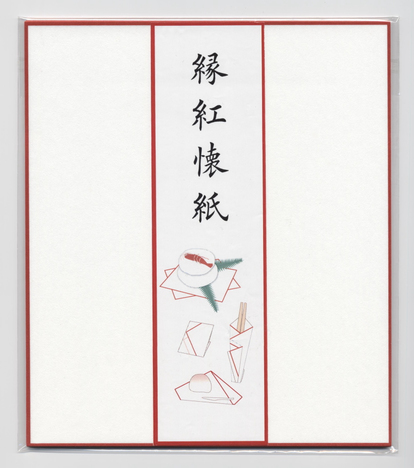 縁紅懐紙